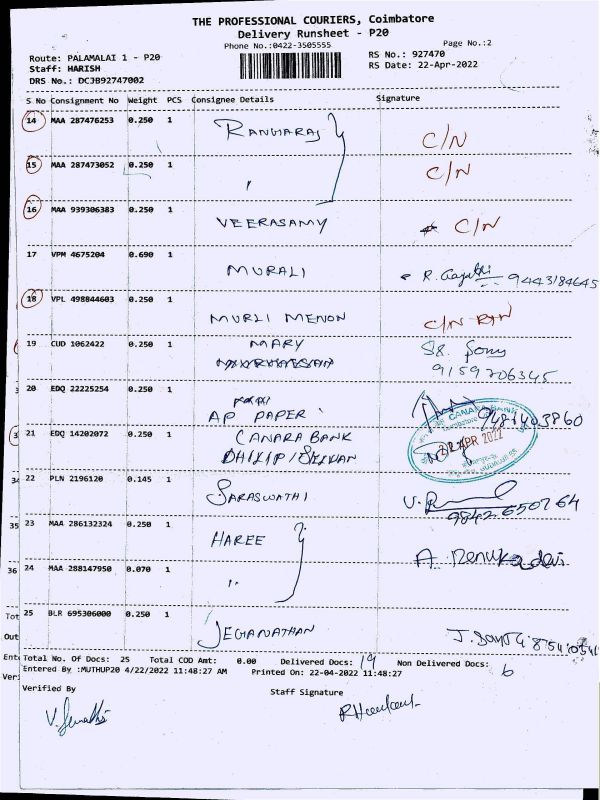 THE PROFESSIONAL COURIERS, Coimbatore
Delivery Runsheet - P20
Phone No.:0422-3505555 Page No.:2
Route: PALAMALAI 1 - P20 RS No.: 927470
Staff: HARISH RS Date: 22-Apr-2022
DRS No.: DCJB92747002
S No Consignment No Weight PCS Consignee Details Signature
14 MAA 287476253 0.250 1
RANGARAJ C/N
15 MAA 287473052 0.250 1
" C/N
16 MAA 939306383 0.250 1
VEERASAMY C/N
17 VPM 4675204 0.690 1
MURALI R. Gayathri 9443184645
18 VPL 498844603 0.250 1
MURLI MENON C/N
19 CUD 1062422 0.250 1
MARY Sr. Sony
9159706345
20 EDQ 22225254 0.250 1
AP PAPER
21 EDQ 14202072 0.250 1
CANARA BANK
CANARA BANK
22 APR 2022
22 PLN 2196120 0.145 1
SARASWATHI
9842650764
23 MAA 286132324 0.250 1
HAREE A. Renukadevi
24 MAA 288147950 0.070 1
"
25 BLR 695306000 0.250 1
JEGANATHAN
Total No. Of Docs: 25 Total COD Amt: 0.00 Delivered Docs: 19 Non Delivered Docs: 6
Entered By :MUTHUP20 4/22/2022 11:48:27 AM Printed On: 22-04-2022 11:48:27
Verified By Staff Signature
35
36
Tot
Out
Ent
Ver